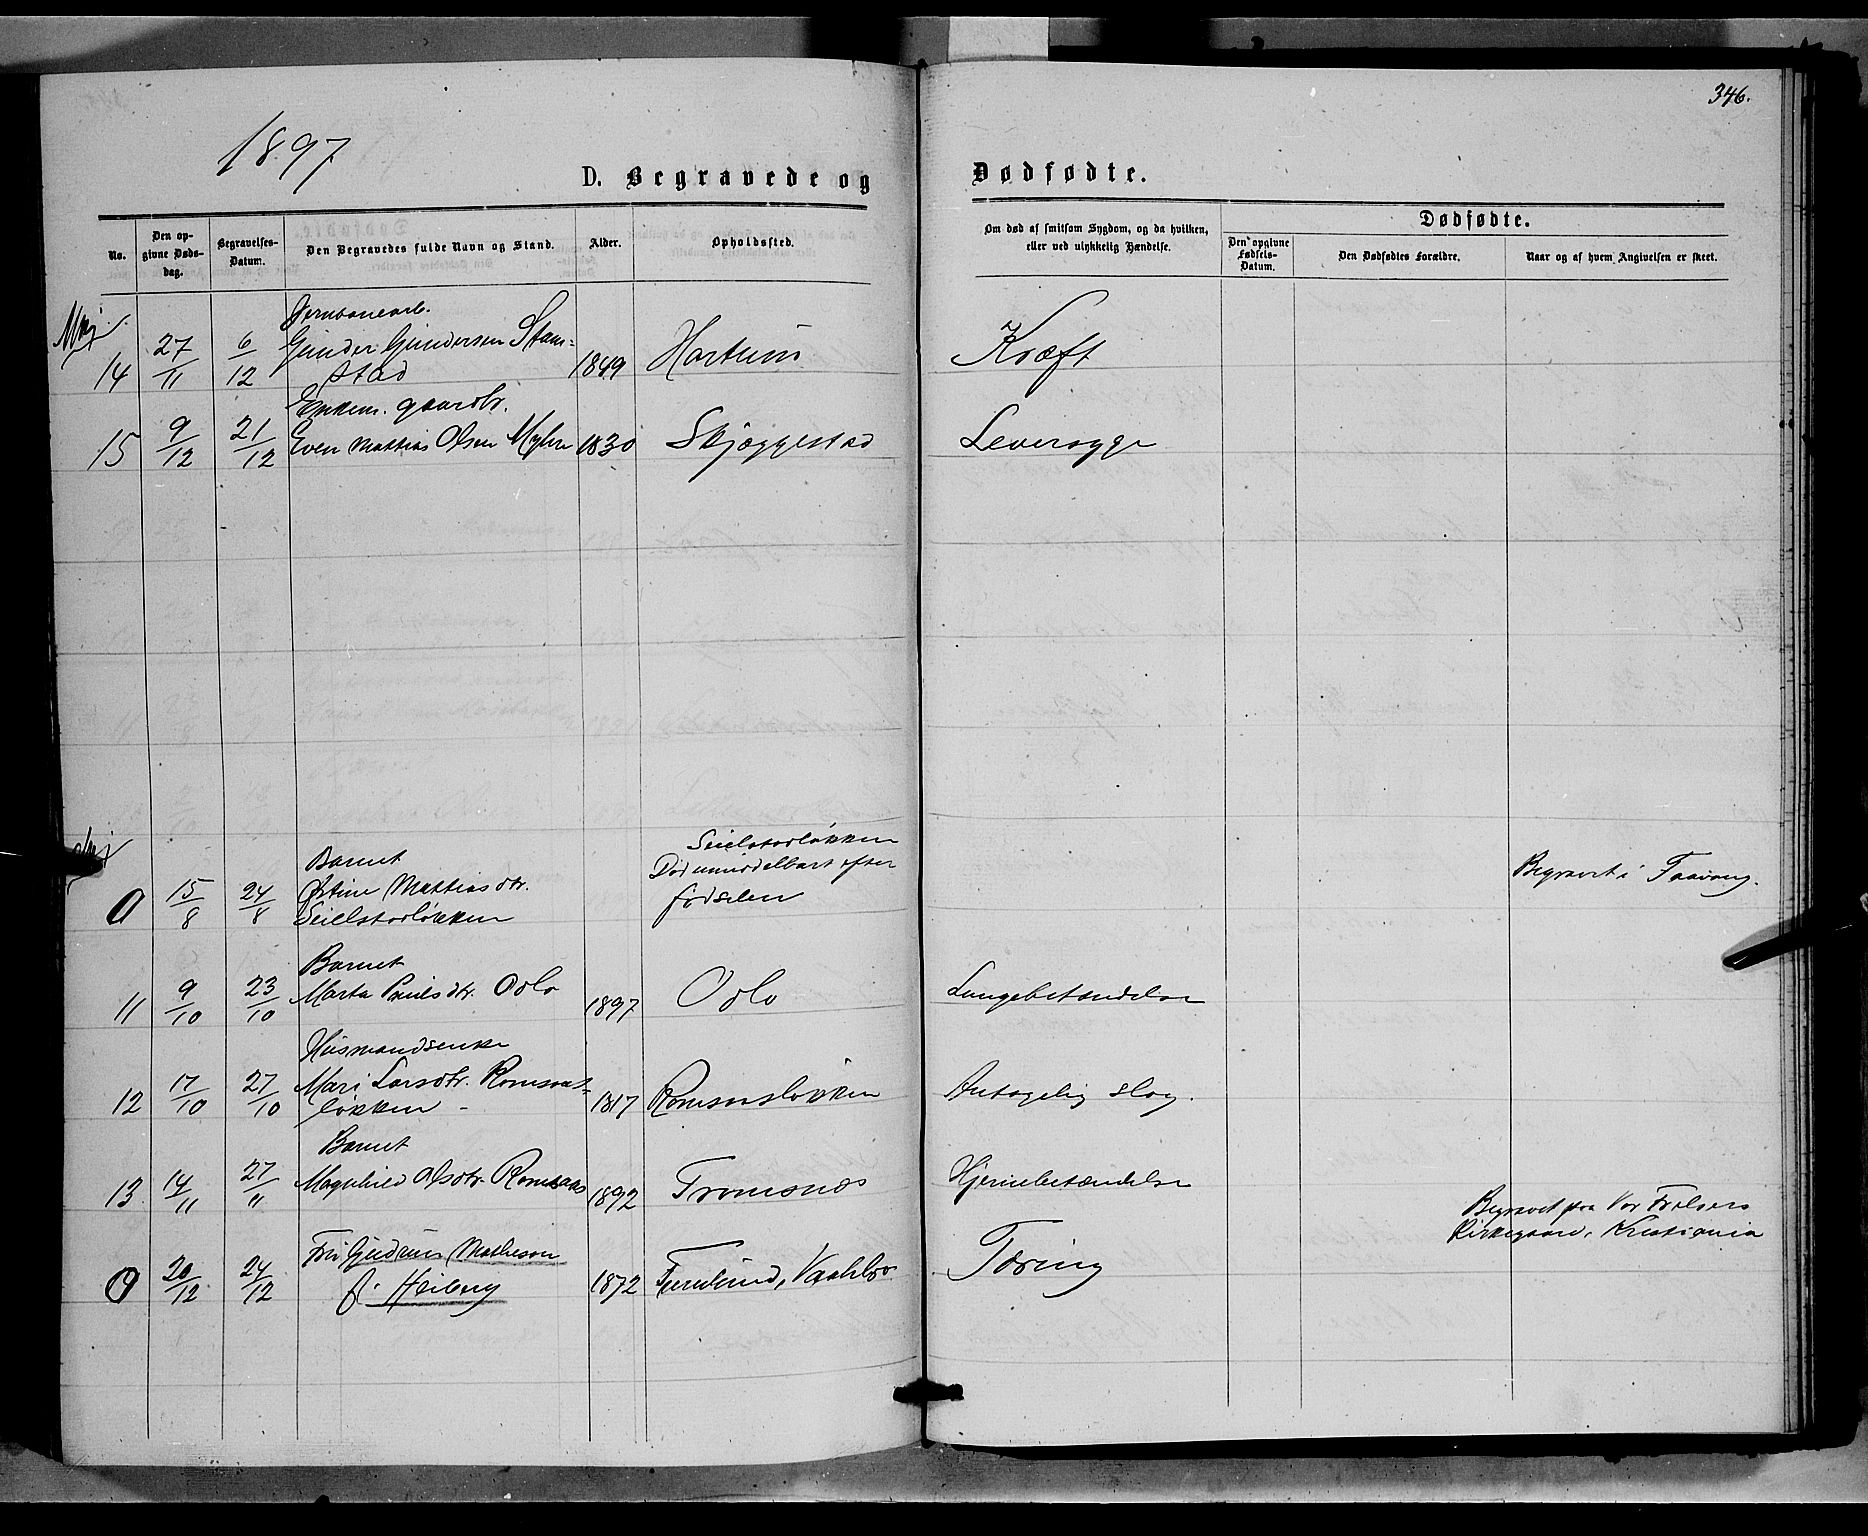 346.
1897
D. Begravede og Dødfødte.
No.
Den opgivne Dødsdag.
Begravelses-Datum.
Den Begravedes fulde Navn og Stand.
Alder.
Opholdssted.
Om død af smitsom Sygdom, og da hvilken, eller ved ulykkelig Hændelse.
Dødfødte.
Den opgivne Fødsels-Datum.
Den Dødfødtes Forældre.
Naar og af hvem Angivelsen er skeet.
Jernbanearb.
14 27/11 6/12 Gunder Gundersen Stam- 1849 Hartum Kræft
stad
Enkem. gaardbr.
15 9/12 21/12 Even Mattias Olsen Myhre 1830 Skjæggestad Leversyge
Barnet Seielstadløkken
0 15/8 24/8 Østine Mattiasdtr. Død umiddelbart efter Begravet i Faavang.
Seielstadløkken fødselen
Barnet
11 9/10 23/10 Marta Paulsdtr. Odlo 1897 Odlo Lungebetændelse
Husmandsenke
12 17/10 27/10 Mari Larsdtr. Romsaas- 1817 Romsaasløkken Antagelig slag.
løkken
Barnet
13 14/11 27/11 Magnhild Olsdtr. Romsaas 1892 Tromsnæs Hjernebetændelse
Begravet paa Vor Frelsers
Kirkegaard, Kristiania
0 20/12 24/12 Fru Gudrun Matheson 1872 Furulund, Vaalebro Tæring
f. Heiberg